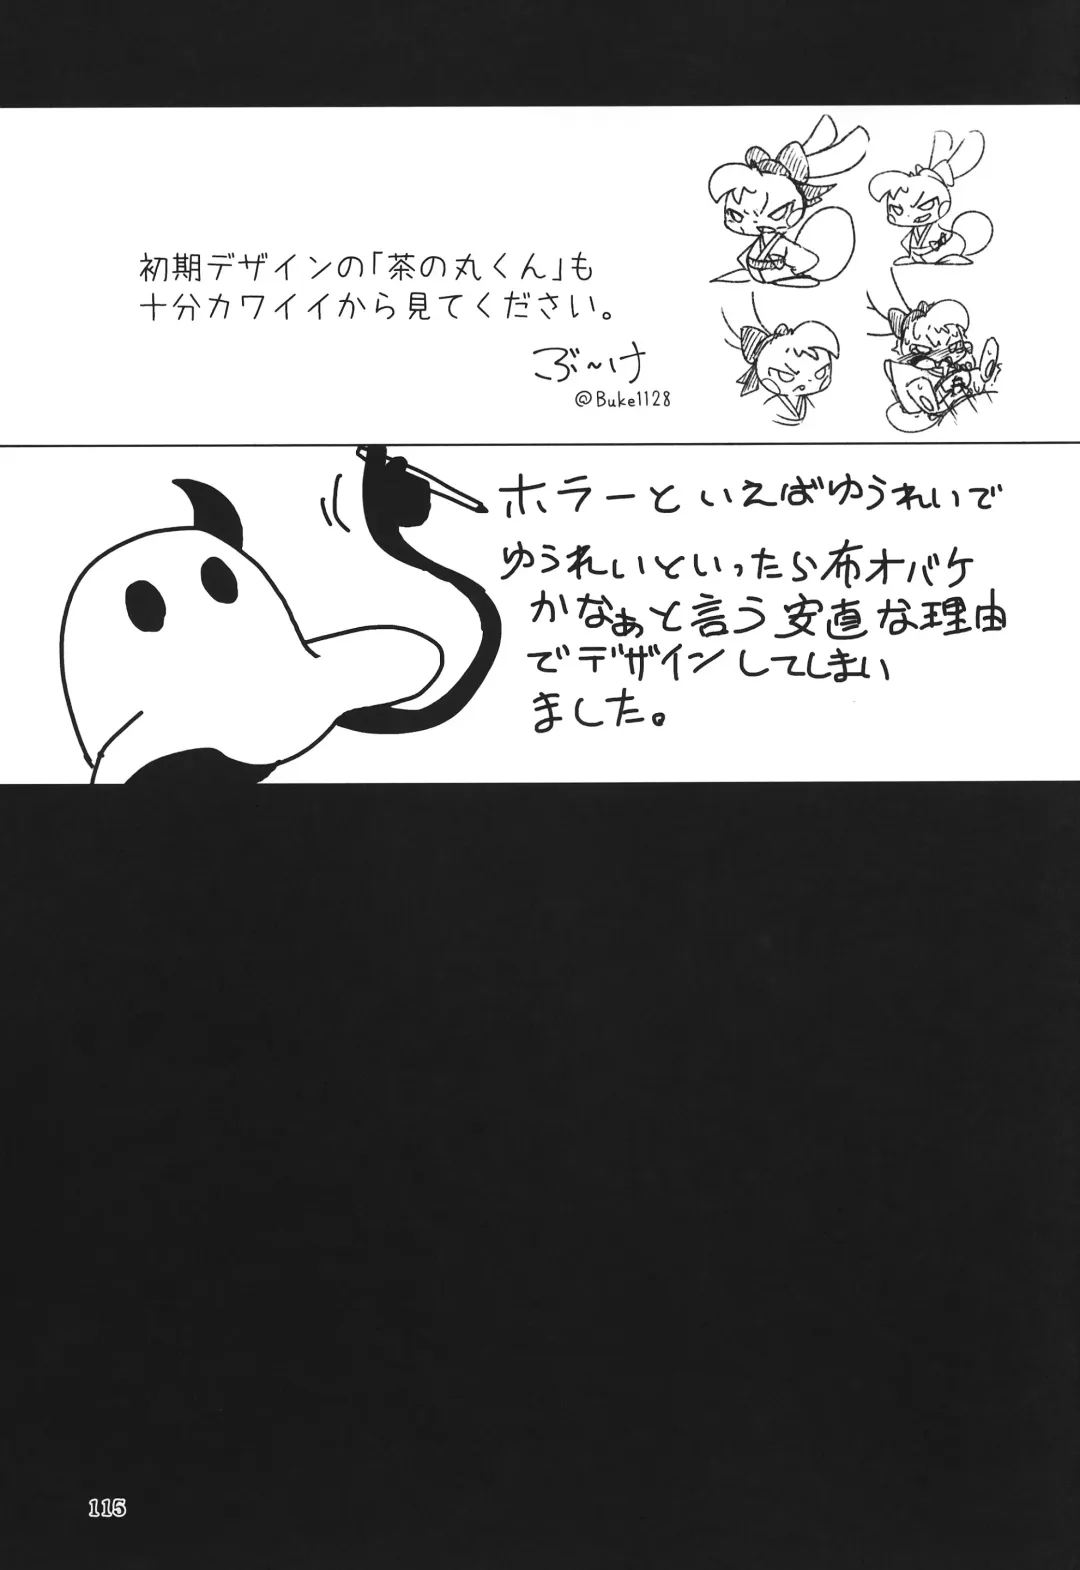 初期デザインの「茶の丸くん」も
十分カワイイから見てください。
ぶ～け
@Buke1128
ホラーといえばゆうれいで
ゆうれいといったら布オバケ
かなぁと言う安直な理由
でデザインしてしまい
ました。
115